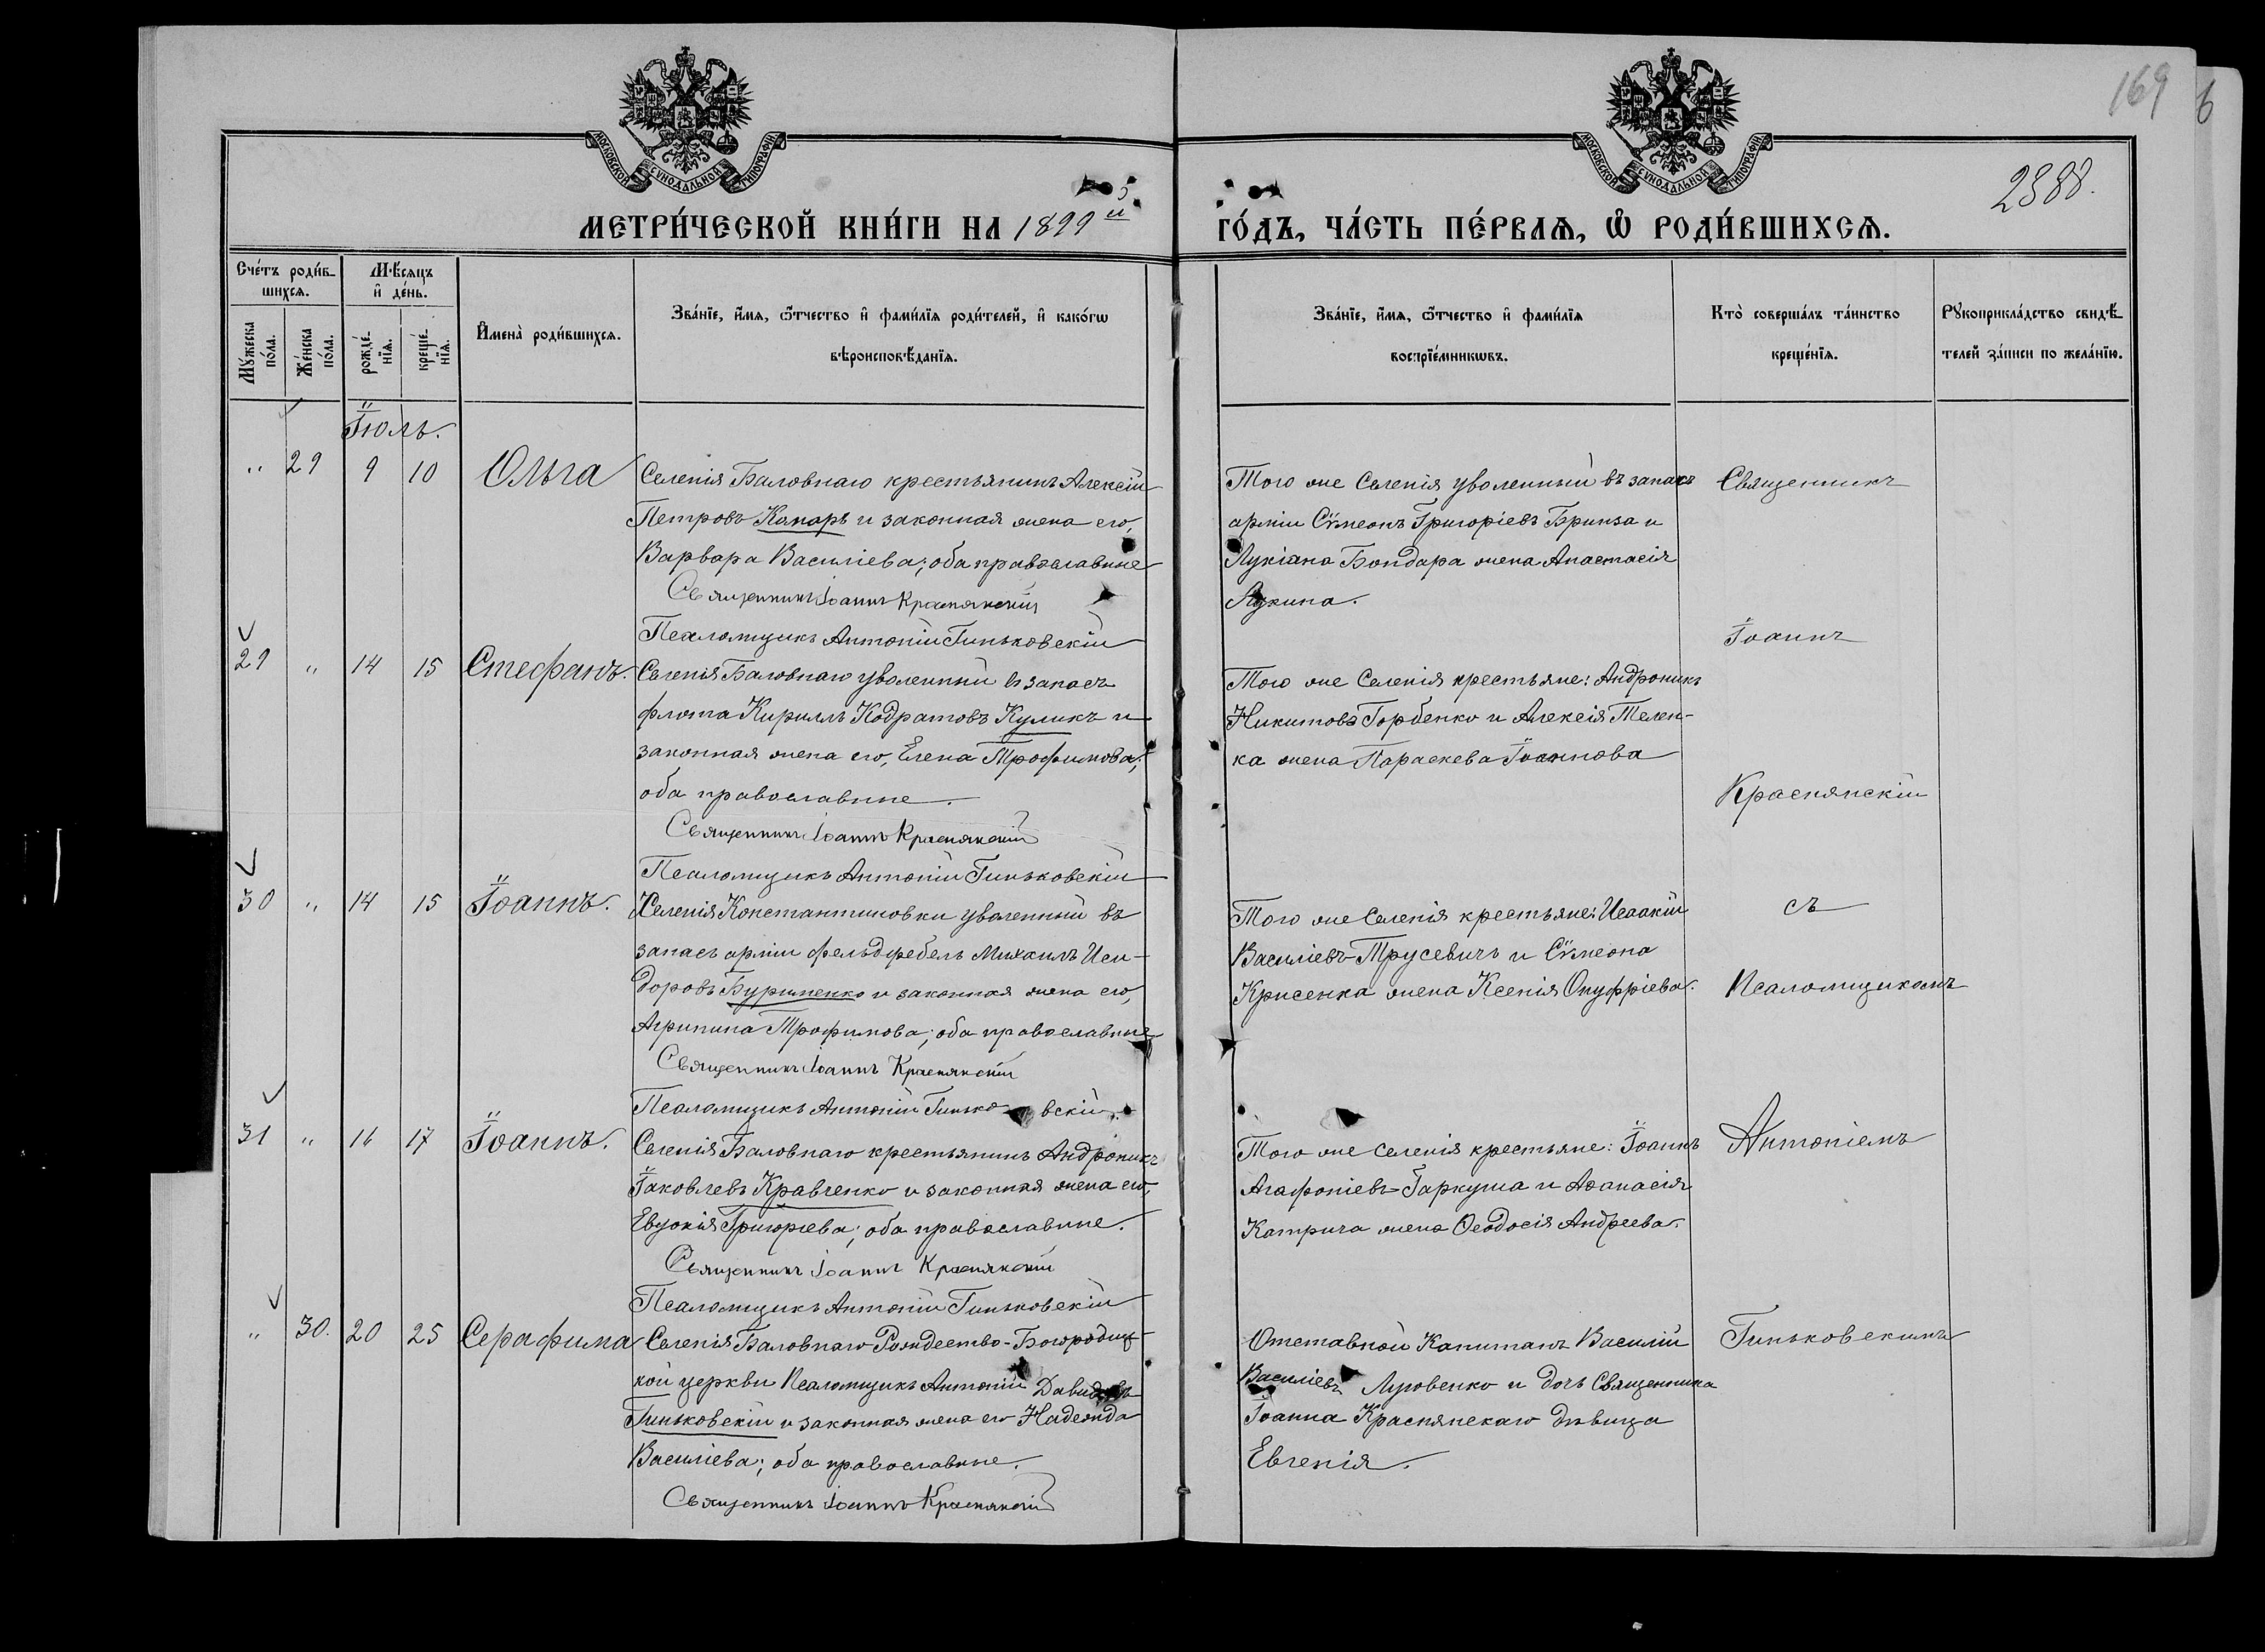 169
6
2388.
МОСКОВСКОЙ СѴНОДАЛЬНОЙ ТИПОГРАФІИ
МОСКОВСКОЙ СѴНОДАЛЬНОЙ ТИПОГРАФІИ
МЕТРИ́ЧЕСКОЙ КНИ́ГИ НА 1899 й
ГО́ДЪ, ЧА́СТЬ ПЕ́РВАѦ, Ѽ РОДИ́ВШИХСѦ.
Сче́тъ роди́в-
шихсѧ.
Мѣ́сѧцъ
и҆ де́нь.
Мꙋ́жеска
по́ла.
Же́нска
по́ла.
рожде́-
нїѧ.
креще́-
нїѧ.
И҆мена̀ роди́вшихсѧ.
Зва́нїе, и҆́мѧ, ѻ҆́тчество и҆ фами́лїѧ роди́телей, и҆ како́гѡ
вѣроисповѣ́данїѧ.
Зва́нїе, и҆́мѧ, ѻ҆́тчество и҆ фами́лїѧ
воспрїе́мникѡвъ.
Кто̀ соверша́лъ та́инство
креще́нїѧ.
Рꙋкоприкла́дство свидѣ́-
телей за́писи по жела́нїю.
Іюль.
" 29 9 10 Ольга
Селенія Баловнаго крестьянинъ Алексій
Петровъ Канаръ и законная жена его,
Варвара Василіева; оба православные
Священникъ Іоаннъ Краснянскій
Псаломщикъ Антоній Гиньковскій
Того же селенія уволенный въ запасъ
арміи Сѵмеонъ Григоріевъ Бринза и
Лукіана Бондара жена Анастасія
Лукина.
Священникъ
Іоаннъ
29 " 14 15 Стефанъ.
Селенія Баловнаго уволенный въ запасъ
флота Кириллъ Кодратовъ Куликъ и
законная жена его, Елена Трофимова;
оба православные.
Священникъ Іоаннъ Краснянскій
Псаломщикъ Антоній Гиньковскій
Того же селенія крестьяне: Андроникъ
Никитовъ Горбенко и Алексія Телен-
ка жена Параскева Іоаннова
Краснянскій
30 " 14 15 Іоаннъ.
Селенія Константиновки уволенный въ
запасъ арміи фельдфебель Михаилъ Иси-
доровъ Бурименко и законная жена его,
Агрипина Трофимова; оба православные
Священникъ Іоаннъ Краснянскій
Псаломщикъ Антоній Гиньковскій
Того же селенія крестьяне: Исаакій
Василіевъ Трусевичъ и Сѵмеона
Крисенка жена Ксенія Онуфріева.
съ
Псаломщикомъ
31 " 16 17 Іоаннъ.
Селенія Баловнаго крестьянинъ Андроникъ
Іаковлевъ Кравченко и законная жена его,
Евдокія Григоріева; оба православные.
Священникъ Іоаннъ Краснянскій
Псаломщикъ Антоній Гиньковскій
Того же селенія крестьяне: Іоаннъ
Агафоніевъ Гаркуша и Аѳанасія
Катрича жена Ѳеодосія Андреева.
Антоніемъ
" 30. 20 25 Серафима
Селенія Баловнаго Рождество-Богородиц-
кой церкви Псаломщикъ Антоній Давидовъ
Гиньковскій и законная жена его Надежда
Василіева; оба православные.
Священникъ Іоаннъ Краснянскій
Отставной Капитанъ Василій
Василіевъ Луговенко и дочь Священника
Іоанна Краснянскаго дѣвица
Евгенія.
Гиньковскимъ